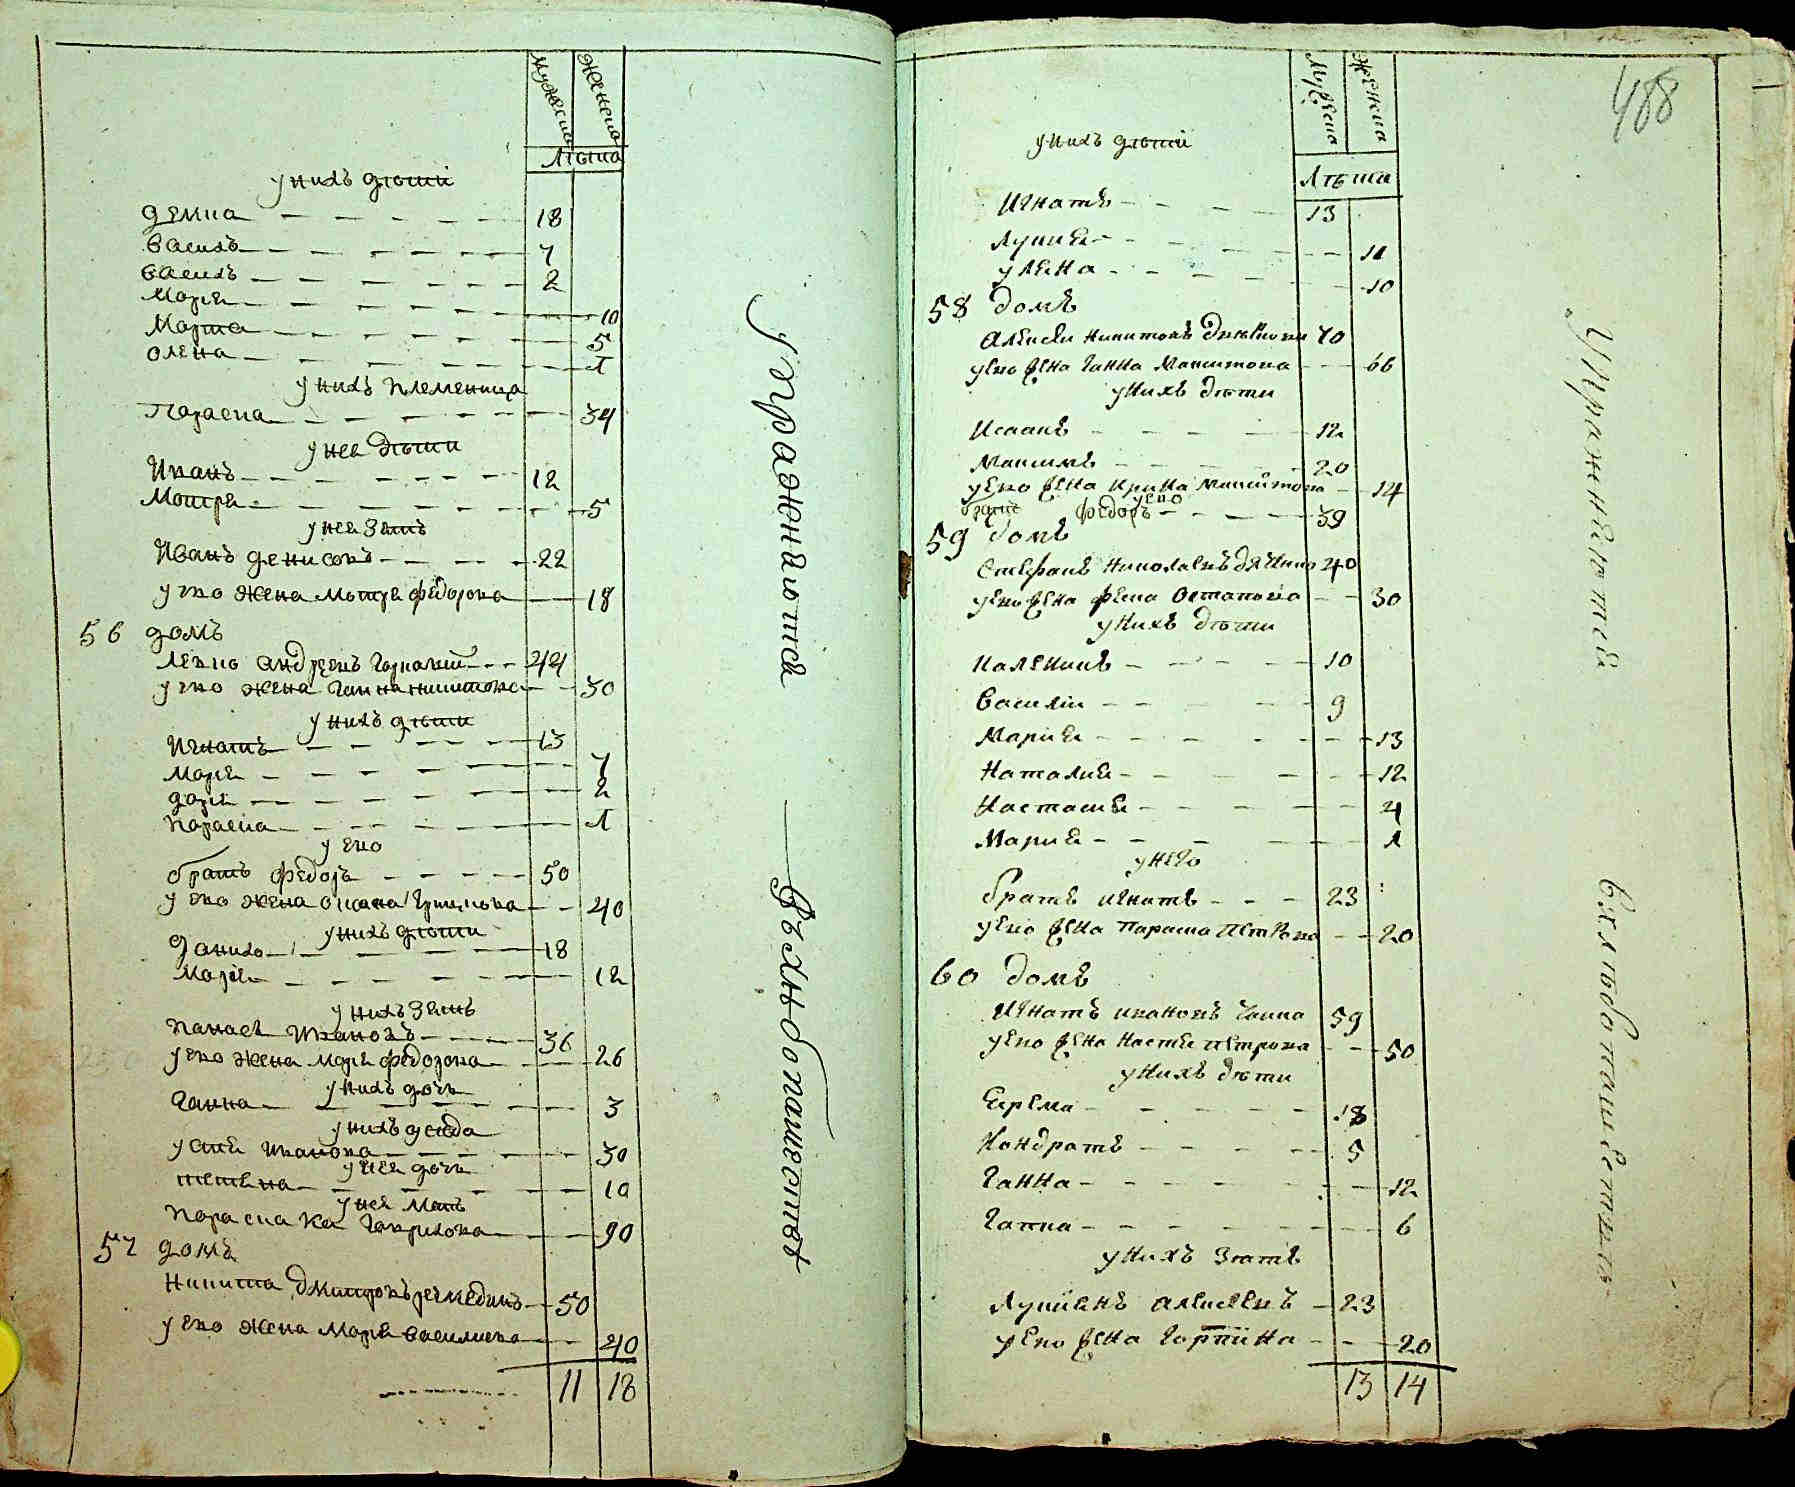 мужеска женска
лѣта
у нихъ дѣти
демка 18
василь 7
василь 2
Маріа 10
Марта 5
олена 1
у нихъ племеница
Параска 34
у нея дѣти
Иванъ 12
Мотря 5
у нея зять
Иванъ денисовъ 22
у его жена мотря федорова 18
56 домъ
левко андреевъ 44
у его жена ганна никитова 30
у нихъ дѣти
Игнатъ 13
маря 7
даря 2
параска 1
у его
братъ федоръ 50
у его жена оксана 40
у нихъ дѣти
данило 18
маря 12
у нихъ зять
панасъ Ивановъ 36
у его жена маря федорова 26
у нихъ дочь
ганна 3
у нихъ
Иванова 30
у нея дочь
тетяна 10
у нея мать
параска гаврилова 90
57 домъ
никита дмитровъ 50
у его жена маря василиева 40
11 18
упражняются
в хлѣбопашествѣ
488
мужеска женска
лѣта
у нихъ дѣти
Игнатъ 13
Лукия 11
улияна 10
58 домъ
Алексѣй никитовъ 70
у его жена ганна Микитова 66
у нихъ дѣти
Исаакъ 12
Максимъ 20
у его жена ирина микитова 14
у его
братъ федоръ 39
59 домъ
Стефанъ николаевъ 40
у его жена фекла остапова 30
у нихъ дѣти
каленикъ 10
василій 9
Мария 13
Наталия 12
Настасия 4
Мария 1
у него
братъ игнатъ 23
у его жена параска петрова 20
60 домъ
Игнатъ ивановъ 59
у его жена настя петрова 50
у нихъ дѣти
Ерема 18
Кондратъ 5
Ганна 12
Гапка 6
у нихъ зять
Лукиянъ алексѣевъ 23
у его жена горпина 20
13 14
Упражняются
в хлѣбопашествѣ